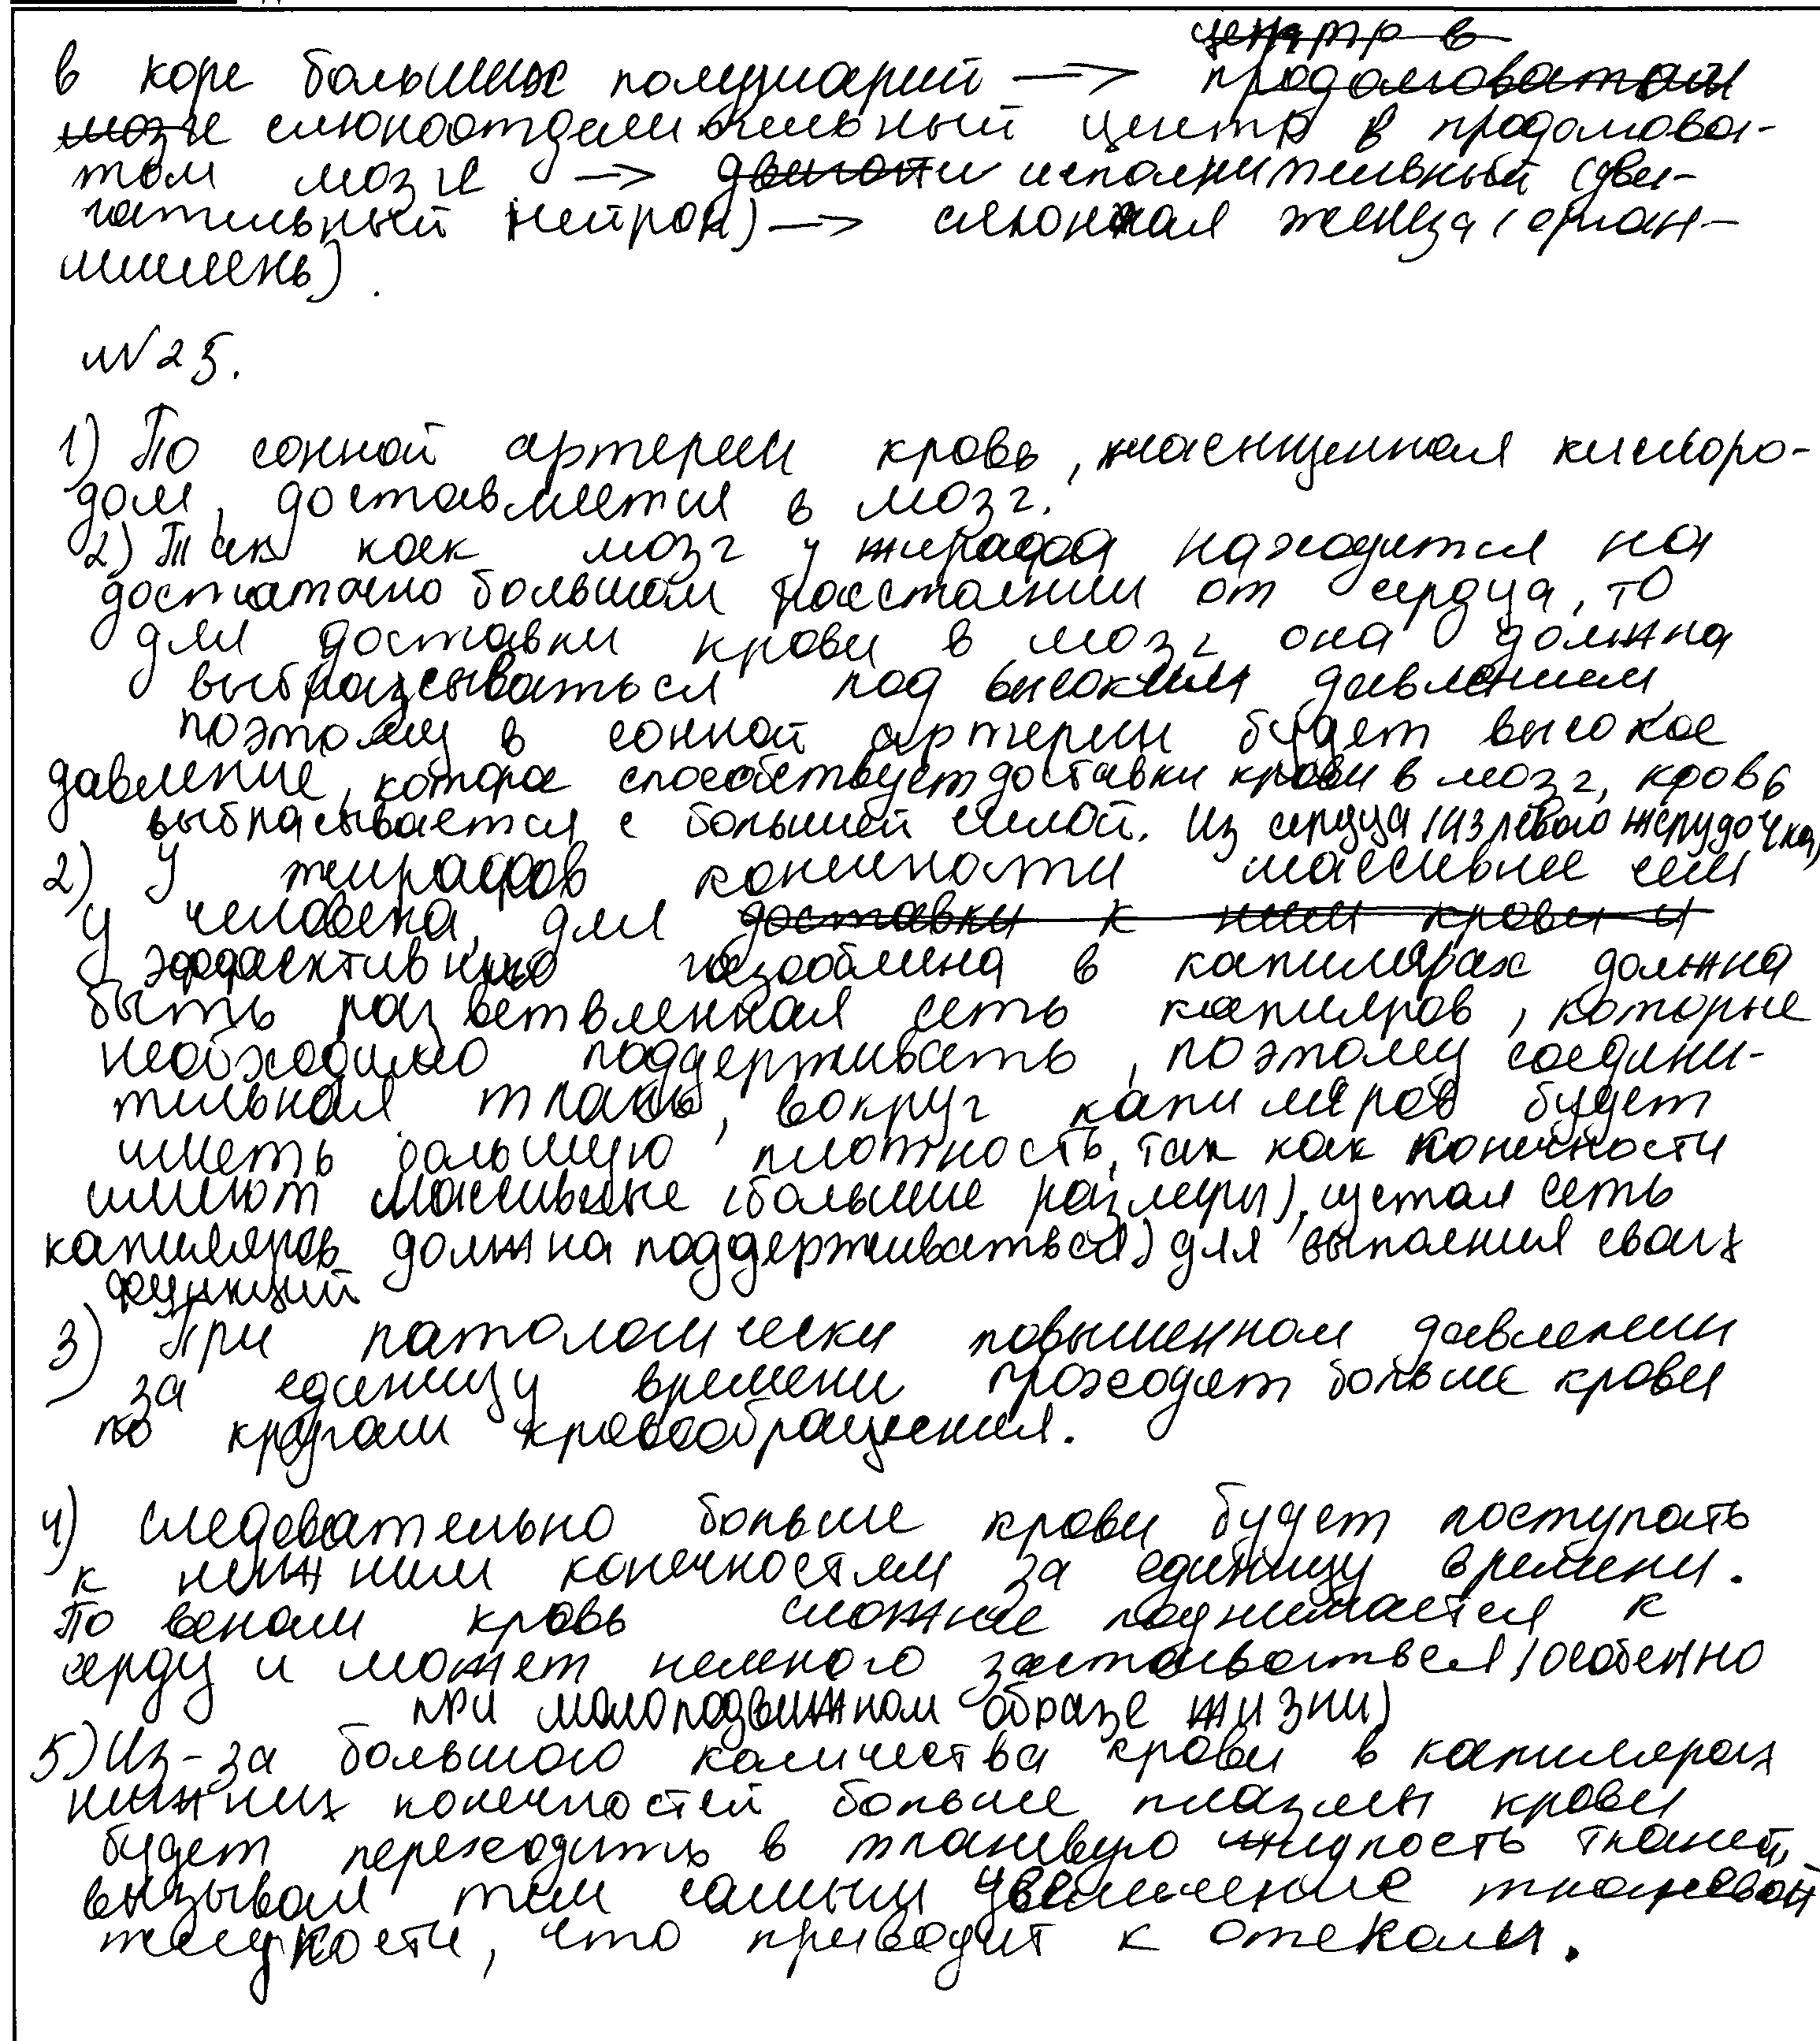 центр в
в коре больших полушарий —> продолговатом
мозге слюноотделительный центр в продолгова-
том мозге —> двигати исполнительный (дви-
гательный нейрон) —> слюнная железа (орган-
мишень).
№25.
1) По сонной артерии кровь, насыщенная кислоро-
дом, доставляется в мозг.
2) Так как мозг у жирафа находится на
достаточно большом расстоянии от сердца, то
для доставки крови в мозг она должна
выбрасываться под высоким давлением,
поэтому в сонной артерии будет высокое
давление, которое способствует доставки крови в мозг, кровь
выбрасывается с большей силой. Из сердца (из левого желудочка)
2) У жирафов конечности массивнее чем
у человека, для доставки к ним крови и
эффективного газообмена в капилярах должна
быть разветвленная сеть капиляров, которые
необходимо поддерживать, поэтому соедини-
тельная ткань, вокруг капиляров будет
иметь большую плотность, так как конечности
имеют массивные (большие размеры), густая сеть
капиляров должна поддерживаться) для выполения своих
функций
3) При патологически повышенном давлении
за единицу времени проходит больше крови
по кругам кровообращения.
4) Следовательно больше крови будет поступать
к нижним конечностям за единицу времени.
По венам кровь сложнее поднимается к
серду и может немного застаиваться (особенно
при малоподвижном образе жизни)
5) Из-за большого количества крови в капилярах
нижних конечностей больше плазмы крови
будет переходить в тканевую жидкость тканей,
вызывая тем самым увеличение тканевой
жидкости, что приводит к отекам.